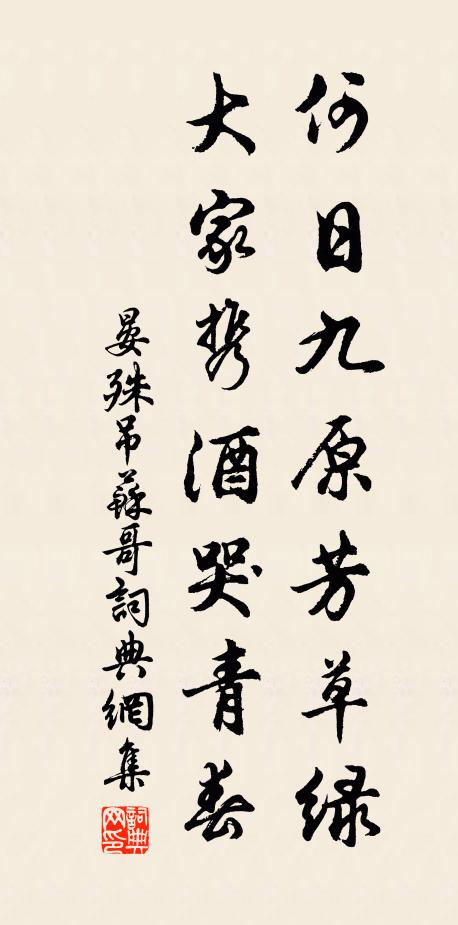 何日九原芳草绿
大家携酒哭青春
晏殊吊蘇哥詞典網集
詞典网印